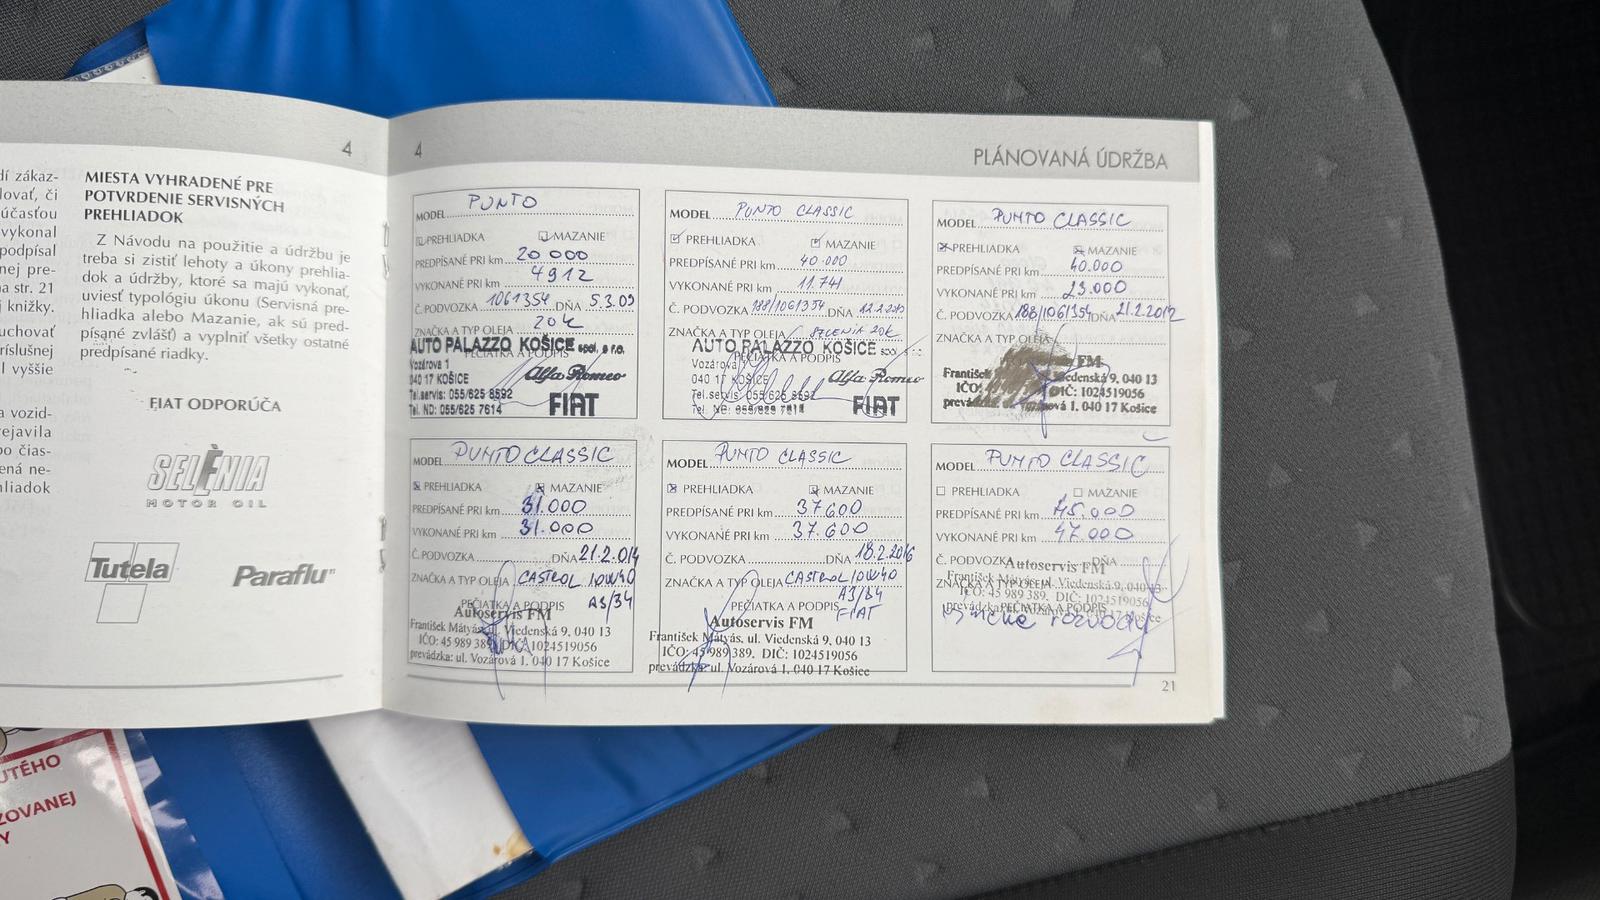 4
dí zákaz-
lovať, či
účasťou
vykonal
podpísal
nej pre-
na str. 21
j knižky.
uchovať
ríslušnej
vyššie
a vozid-
ejavila
bo čias-
ená ne-
hliadok
MIESTA VYHRADENÉ PRE
POTVRDENIE SERVISNÝCH
PREHLIADOK
Z Návodu na použitie a údržbu je
treba si zistiť lehoty a úkony prehlia-
dok a údržby, ktoré sa majú vykonať,
uviesť typológiu úkonu (Servisná pre-
hliadka alebo Mazanie, ak sú pred-
písané zvlášť) a vyplniť všetky ostatné
predpísané riadky.
FIAT ODPORÚČA
SELÈNIA
MOTOR OIL
Tutela
Paraflu
4
PLÁNOVANÁ ÚDRŽBA
MODEL PUNTO
PREHLIADKA MAZANIE
PREDPÍSANÉ PRI km 20 000
VYKONANÉ PRI km 4912
Č. PODVOZKA 1061354 DŇA 5.3.09
ZNAČKA A TYP OLEJA 20K
PEČIATKA A PODPIS
AUTO PALAZZO KOŠICE spol. s r.o.
Vozárova 1
040 17 KOŠICE Alfa Romeo
Tel.servis: 055/625 8592
Tel. ND: 055/625 7614 FIAT
MODEL PUNTO CLASSIC
PREHLIADKA MAZANIE
PREDPÍSANÉ PRI km 40.000
VYKONANÉ PRI km 11.741
Č. PODVOZKA 188/1061354 DŇA
ZNAČKA A TYP OLEJA SELENIA 20K
PEČIATKA A PODPIS
AUTO PALAZZO KOŠICE spol.
Vozárova
040 17 KOŠICE Alfa Romeo
Tel.servis 055/625 8592
Tel. ND: 055/625 7614 FIAT
MODEL PUNTO CLASSIC
PREHLIADKA MAZANIE
PREDPÍSANÉ PRI km 40.000
VYKONANÉ PRI km 23.000
Č. PODVOZKA 188/1061354 DŇA 21.2.2012
ZNAČKA A TYP OLEJA
FM
František Viedenská 9, 040 13
IČO: DIČ: 1024519056
prevádzka: Vozárová 1, 040 17 Košice
MODEL PUNTO CLASSIC
PREHLIADKA MAZANIE
PREDPÍSANÉ PRI km 31.000
VYKONANÉ PRI km 31.000
Č. PODVOZKA DŇA 21.2.014
ZNAČKA A TYP OLEJA CASTROL 10W40
PEČIATKA A PODPIS A3/B4
Autoservis FM
František Mátyás, ul. Viedenská 9, 040 13
IČO: 45 989 389, DIČ: 1024519056
prevádzka: ul. Vozárová 1, 040 17 Košice
MODEL PUNTO CLASSIC
PREHLIADKA MAZANIE
PREDPÍSANÉ PRI km 37.600
VYKONANÉ PRI km 37.600
Č. PODVOZKA DŇA 18.2.2016
ZNAČKA A TYP OLEJA CASTROL 10W40
A3/B4
PEČIATKA A PODPIS FIAT
Autoservis FM
František Mátyás, ul. Viedenská 9, 040 13
IČO: 45 989 389, DIČ: 1024519056
prevádzka: ul. Vozárová 1, 040 17 Košice
MODEL PUNTO CLASSIC
PREHLIADKA MAZANIE
PREDPÍSANÉ PRI km 45.000
VYKONANÉ PRI km 47.000
Č. PODVOZKA DŇA
Autoservis FM
ZNAČKA A TYP OLEJA
František Mátyás, ul. Viedenská 9, 040 13
IČO: 45 989 389, DIČ: 1024519056
PEČIATKA A PODPIS
rozvody
21
UTÉHO
ZOVANEJ
Y